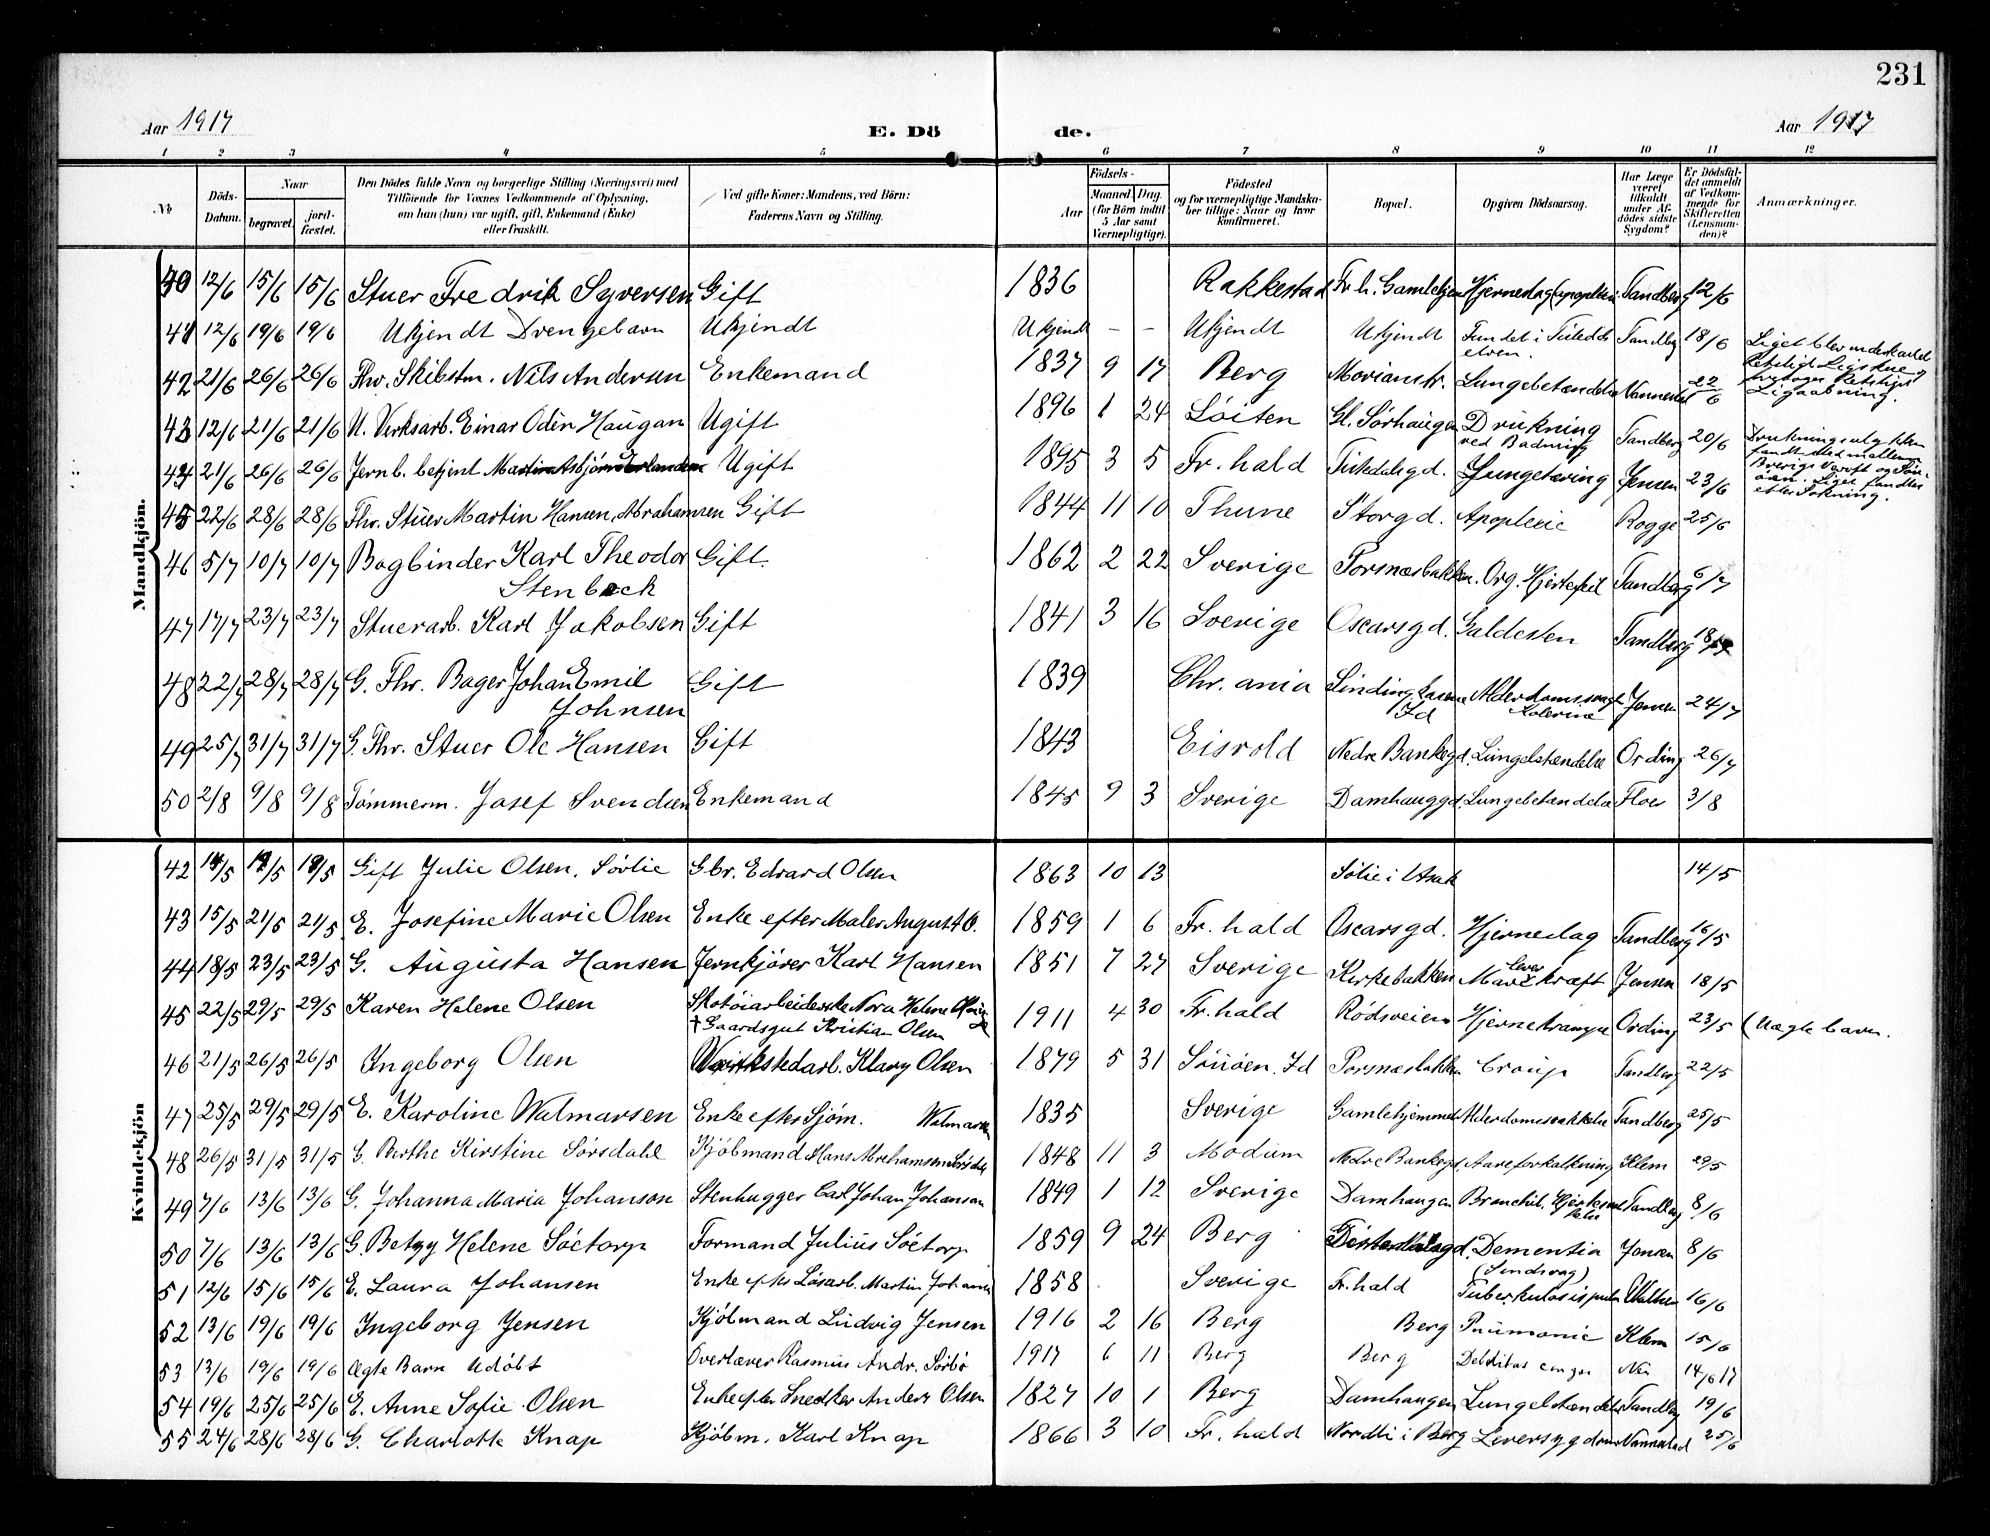 231
Aar 1917 E. Dö de. Aar 1917
1 2 3 4 5 6 7 8 9 10 11 12
No. Döds-Datum. Naar begravet. jord-fæstet. Den Dödes fulde Navn og borgerlige Stilling (Næringsvei) med Tilföiende for Voxnes Vedkommende af Oplysning, om han (hun) var ugift, gift, Enkemand (Enke) eller fraskilt. Ved gifte Koner: Mandens, ved Börn: Faderens Navn og Stilling. Födsels- Aar Maaned Dag. (for Börn indtil 5 Aar samt Værnepligtige). Födested og for værnepligtige Mandskaber tillige: Naar og hvor konfirmeret. Bopæl. Opgiven Dödsaarsag. Har Læge været tilkaldt under Afdödes sidste Sygdom? Er Dödsfaldet anmeldt af Vedkommende for Skifteretten (Lensmanden)? Anmærkninger.
Mandkjön.
40 12/6 15/6 15/6 Stuer Fredrik Syversen Gift 1836 Rakkestad Fr.h. Gamlehjem Hjerneslag (apopleksi Tandberg 12/6
41 12/6 19/6 19/6 Ukjendt Drengebarn Ukjendt Ukjendt – – Ukjendt Ukjendt Fundet i Tistedals elven. Tandbg 18/6 Liget blev underkastet Retsligt Ligskue og Retsligt Ligaabning.
42 21/6 26/6 26/6 Fhv. Skibstm. Nils Andersen Enkemand 1837 9 17 Berg Morianstr. Lungebetændelse Vannestad 22/6
43 12/6 21/6 21/6 U. Verksarb. Einar Odin Haugan Ugift 1896 1 24 Løiten Gl. Sørhaugen Drukning ved Badning Tandberg 20/6 Drukningsulykken fandt sted mellem Sverigs Værft og Sauøen. Liget fandtes efter Sokning.
44 21/6 26/6 26/6 Jernb. betjent Martin Asbjørn Ugift 1895 3 5 Fr. hald Tistedalsgd. Lungetæring Jensen 23/6
45 22/6 28/6 28/6 Fhv. Stuer Martin Hansen, Abrahamsen Gift 1844 11 10 Thune Storgd. Apoplexie Rogge 25/6
46 5/7 10/7 10/7 Bogbinder Karl Theodor Stenbeck Gift. 1862 2 22 Sverige Porsnæsbakken. Org. Hjertefeil Tandberg 6/7
47 17/7 23/7 23/7 Stuerarb. Karl Jakobsen Gift 1841 3 16 Sverige Oscarsgd. Galdesten Tandberg 18/7
48 22/7 28/7 28/7 G. Fhv. Bager Johan Emil Johnsen Gift 1839 Chr. ania Sinding Id Alderdomssvagh. Kolerine Jensen 24/7
49 25/7 31/7 31/7 G. Fhv. Stuer Ole Hansen Gift 1843 Eisvold Nedre Bankegd. Lungebetændelse Ording 26/7
50 2/8 9/8 9/8 Tømmerm. Josef Svendsen Enkemand 1845 9 3 Sverige Damhauggd. Lungebetændelse Floer 3/8
Kvindekjön
42 14/5 19/5 19/5 Gift Julie Olsen. Sørlie Gbr. Edvard Olsen 1863 10 13 Sølie i Asak 14/5
43 15/5 21/5 21/5 E. Josefine Marie Olsen Enke efter Maler August O. 1859 1 6 Fr. hald Oscarsgd. Hjerneslag Tandberg 16/5
44 18/5 23/5 23/5 G. Augusta Hansen Jernkjører Karl Hansen 1851 7 27 Sverige Kirkebakken Mave lever kræft Jensen 18/5
45 22/5 29/5 29/5 Karen Helene Olsen Skotøiarbeiderske Nora Helene + Gaardsgut Kristian Olsen 1911 4 30 Fr. hald Rødsveien Hjernekrampe Ording 23/5 (Uægte barn.
46 21/5 26/5 26/5 Ingeborg Olsen Værkstedarb. Klary Olsen 1879 5 31 Sauøen. Id Porsnæsbakken Croup Tandberg 22/5
47 25/5 29/5 29/5 E. Karoline Walmarsen Enke efter Sjøm. Walmarsen 1835 Sverige Gamlehjemmet Alderdomssvakkelse Tandberg 25/5
48 26/5 31/5 31/5 E. Berthe Kirstine Sørsdahl Kjøbmand Hans Abrahamsen Sørsdal 1848 11 3 Modum Nedre Bankegd. Aareforkalkning Klem 29/5
49 7/6 13/6 13/6 G. Johanna Maria Johanson Stenhugger Carl Johan Johanson 1849 1 12 Sverige Damhaugen Bronchit. Tandberg 8/6
50 7/6 13/6 13/6 G. Betzy Helene Söetorp Formand Julius Söetorp 1859 9 24 Berg Dementia (Sindsvag) Jensen 8/6
51 12/6 15/6 15/6 E. Laura Johansen Enke efter Løsarb. Martin Johansen 1858 Sverige Fr. hald Tuberkulosis pulm 16/6
52 13/6 19/6 19/6 Ingeborg Jensen Kjøbmand Ludvig Jensen 1916 2 16 Berg Berg Pnumonie Klem 15/6
53 13/6 19/6 19/6 Ægte Barn Udøbt Overlærer Rasmus Andr. Sørbø 1917 6 11 Berg Berg Debilitas congen Nei 14/6 17
54 19/6 25/6 25/6 E. Anne Sofie Olsen Enke efter Snedker Anders Olsen 1827 10 1 Berg Damhaugen Lungebetændelse Tandberg 19/6
55 24/6 28/6 28/6 G. Charlotte Knap Kjøbm. Karl Knap 1866 3 10 Fr. hald Nordli i Berg Leversygdom Vannestad 25/6